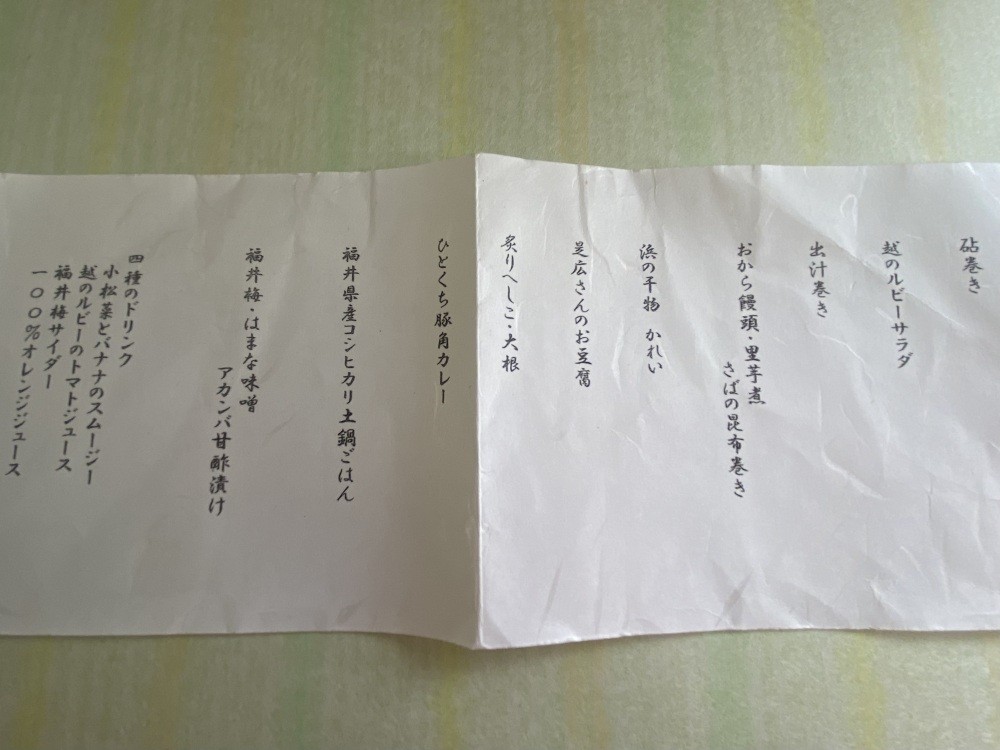 砧巻き
越のルビーサラダ
出汁巻き
おから饅頭・里芋煮
さばの昆布巻き
浜の干物 かれい
是広さんのお豆腐
炙りへしこ・大根
ひとくち豚角カレー
福井県産コシヒカリ土鍋ごはん
福井梅・はまな味噌
アカカンバ甘酢漬け
四種のドリンク
小松菜とバナナのスムージー
越のルビーのトマトジュース
福井梅サイダー
一〇〇%オレンジジュース